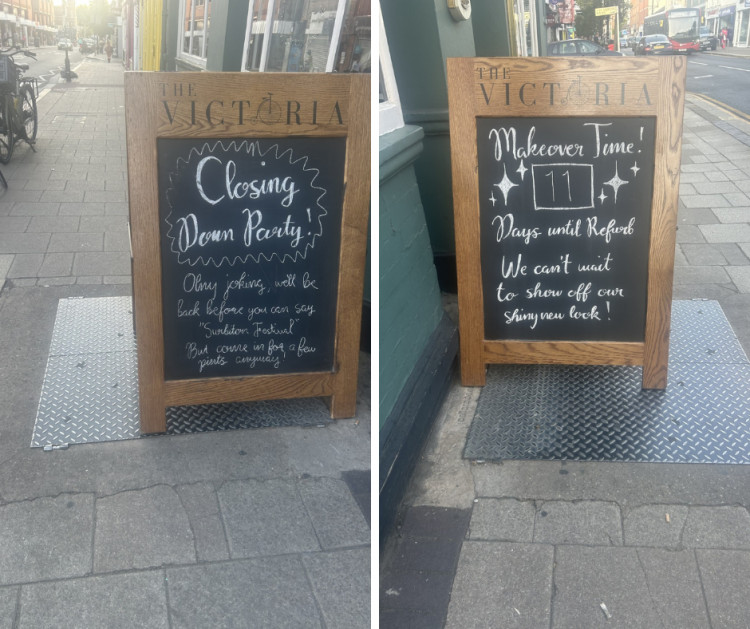 THE
VICTORIA
Closing
Down Party!
Olny joking, we'll be
back before you can say
"Surbiton Festival"
But come in for a few
pints anyway!
THE
VICTORIA
Makeover Time!
11
Days until Refurb
We can't wait
to show off our
shiny new look!